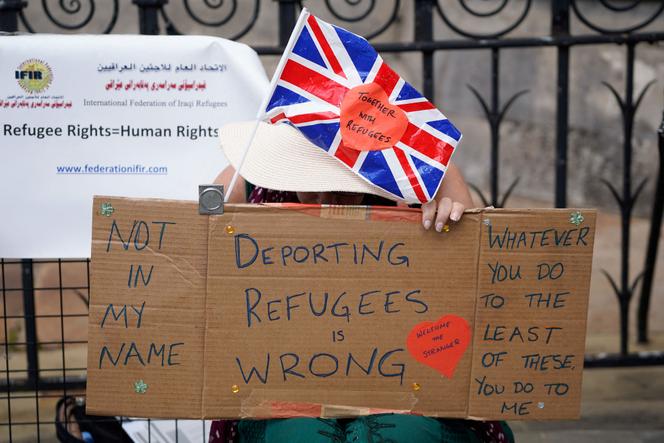 IFIR
الاتحاد العام للاجئين العراقيين
International Federation of Iraqi Refugees
Refugee Rights=Human Rights
www.federationifir.com
TOGETHER
WITH
REFUGEES
NOT
IN
MY
NAME
DEPORTING
REFUGEES
IS
WRONG
WELCOME
THE
STRANGER
WHATEVER
YOU DO
TO THE
LEAST
OF THESE,
YOU DO TO
ME